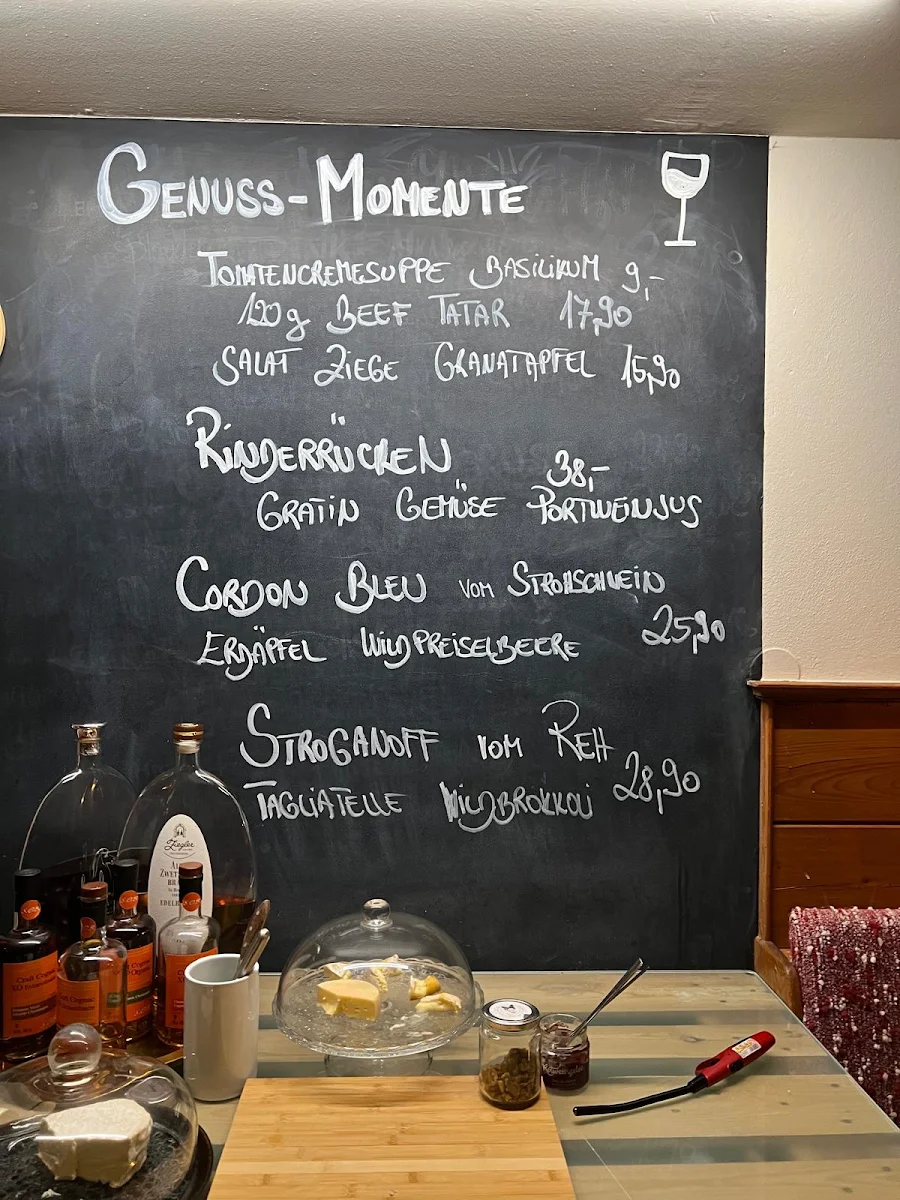 GENUSS-MOMENTE
TOMATENCREMESUPPE BASILIKUM 9,-
120g BEEF TATAR 17,90
SALAT ZIEGE GRANATAPFEL 15,90
RINDERRÜCKEN 38,-
GRATIN GEMÜSE PORTWEINJUS
CORDON BLEU VOM STROHSCHWEIN
ERDÄPFEL WILDPREISELBEERE 25,90
STROGANOFF VOM REH
TAGLIATELLE WILDBROKKOLI 28,90
Ziegler